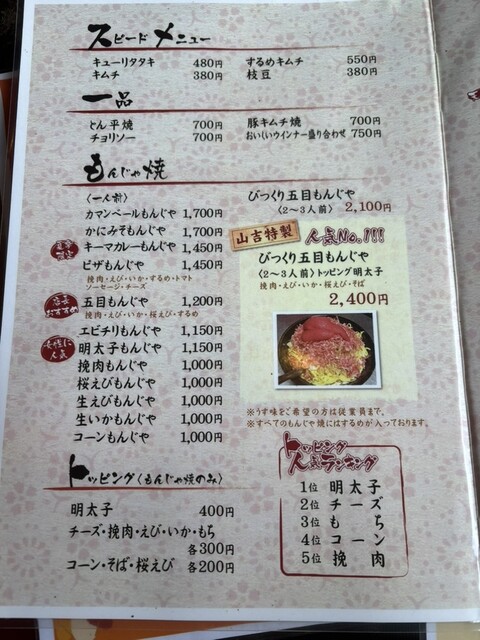 スピードメニュー
キューリタタキ 480円
キムチ 380円
するめキムチ 550円
枝豆 380円
一品
とん平焼 700円
チョリソー 700円
豚キムチ焼 700円
おいしいウインナー盛り合わせ 750円
もんじゃ焼
〈一人前〉
カマンベールもんじゃ 1,700円
かにみそもんじゃ 1,700円
キーマカレーもんじゃ 1,450円
ピザもんじゃ 1,450円
挽肉・えび・いか・するめ・トマト
ソーセージ・チーズ
店長
おすすめ
五目もんじゃ 1,200円
挽肉・えび・いか・桜えび・するめ
エビチリもんじゃ 1,150円
女性に
人気
明太子もんじゃ 1,150円
挽肉もんじゃ 1,000円
桜えびもんじゃ 1,000円
生えびもんじゃ 1,000円
生いかもんじゃ 1,000円
コーンもんじゃ 1,000円
びっくり五目もんじゃ
〈2〜3人前〉 2,100円
山吉特製
人気No.1!!
びっくり五目もんじゃ
〈2〜3人前〉トッピング明太子
挽肉・えび・いか・桜えび・そば
2,400円
※うす味をご希望の方は従業員まで。
※すべてのもんじゃ焼にはするめが入っております。
トッピング〈もんじゃ焼のみ〉
明太子 400円
チーズ・挽肉・えび・いか・もち
各300円
コーン・そば・桜えび 各200円
トッピング
人気ランキング
1位 明太子
2位 チーズ
3位 もち
4位 コーン
5位 挽肉